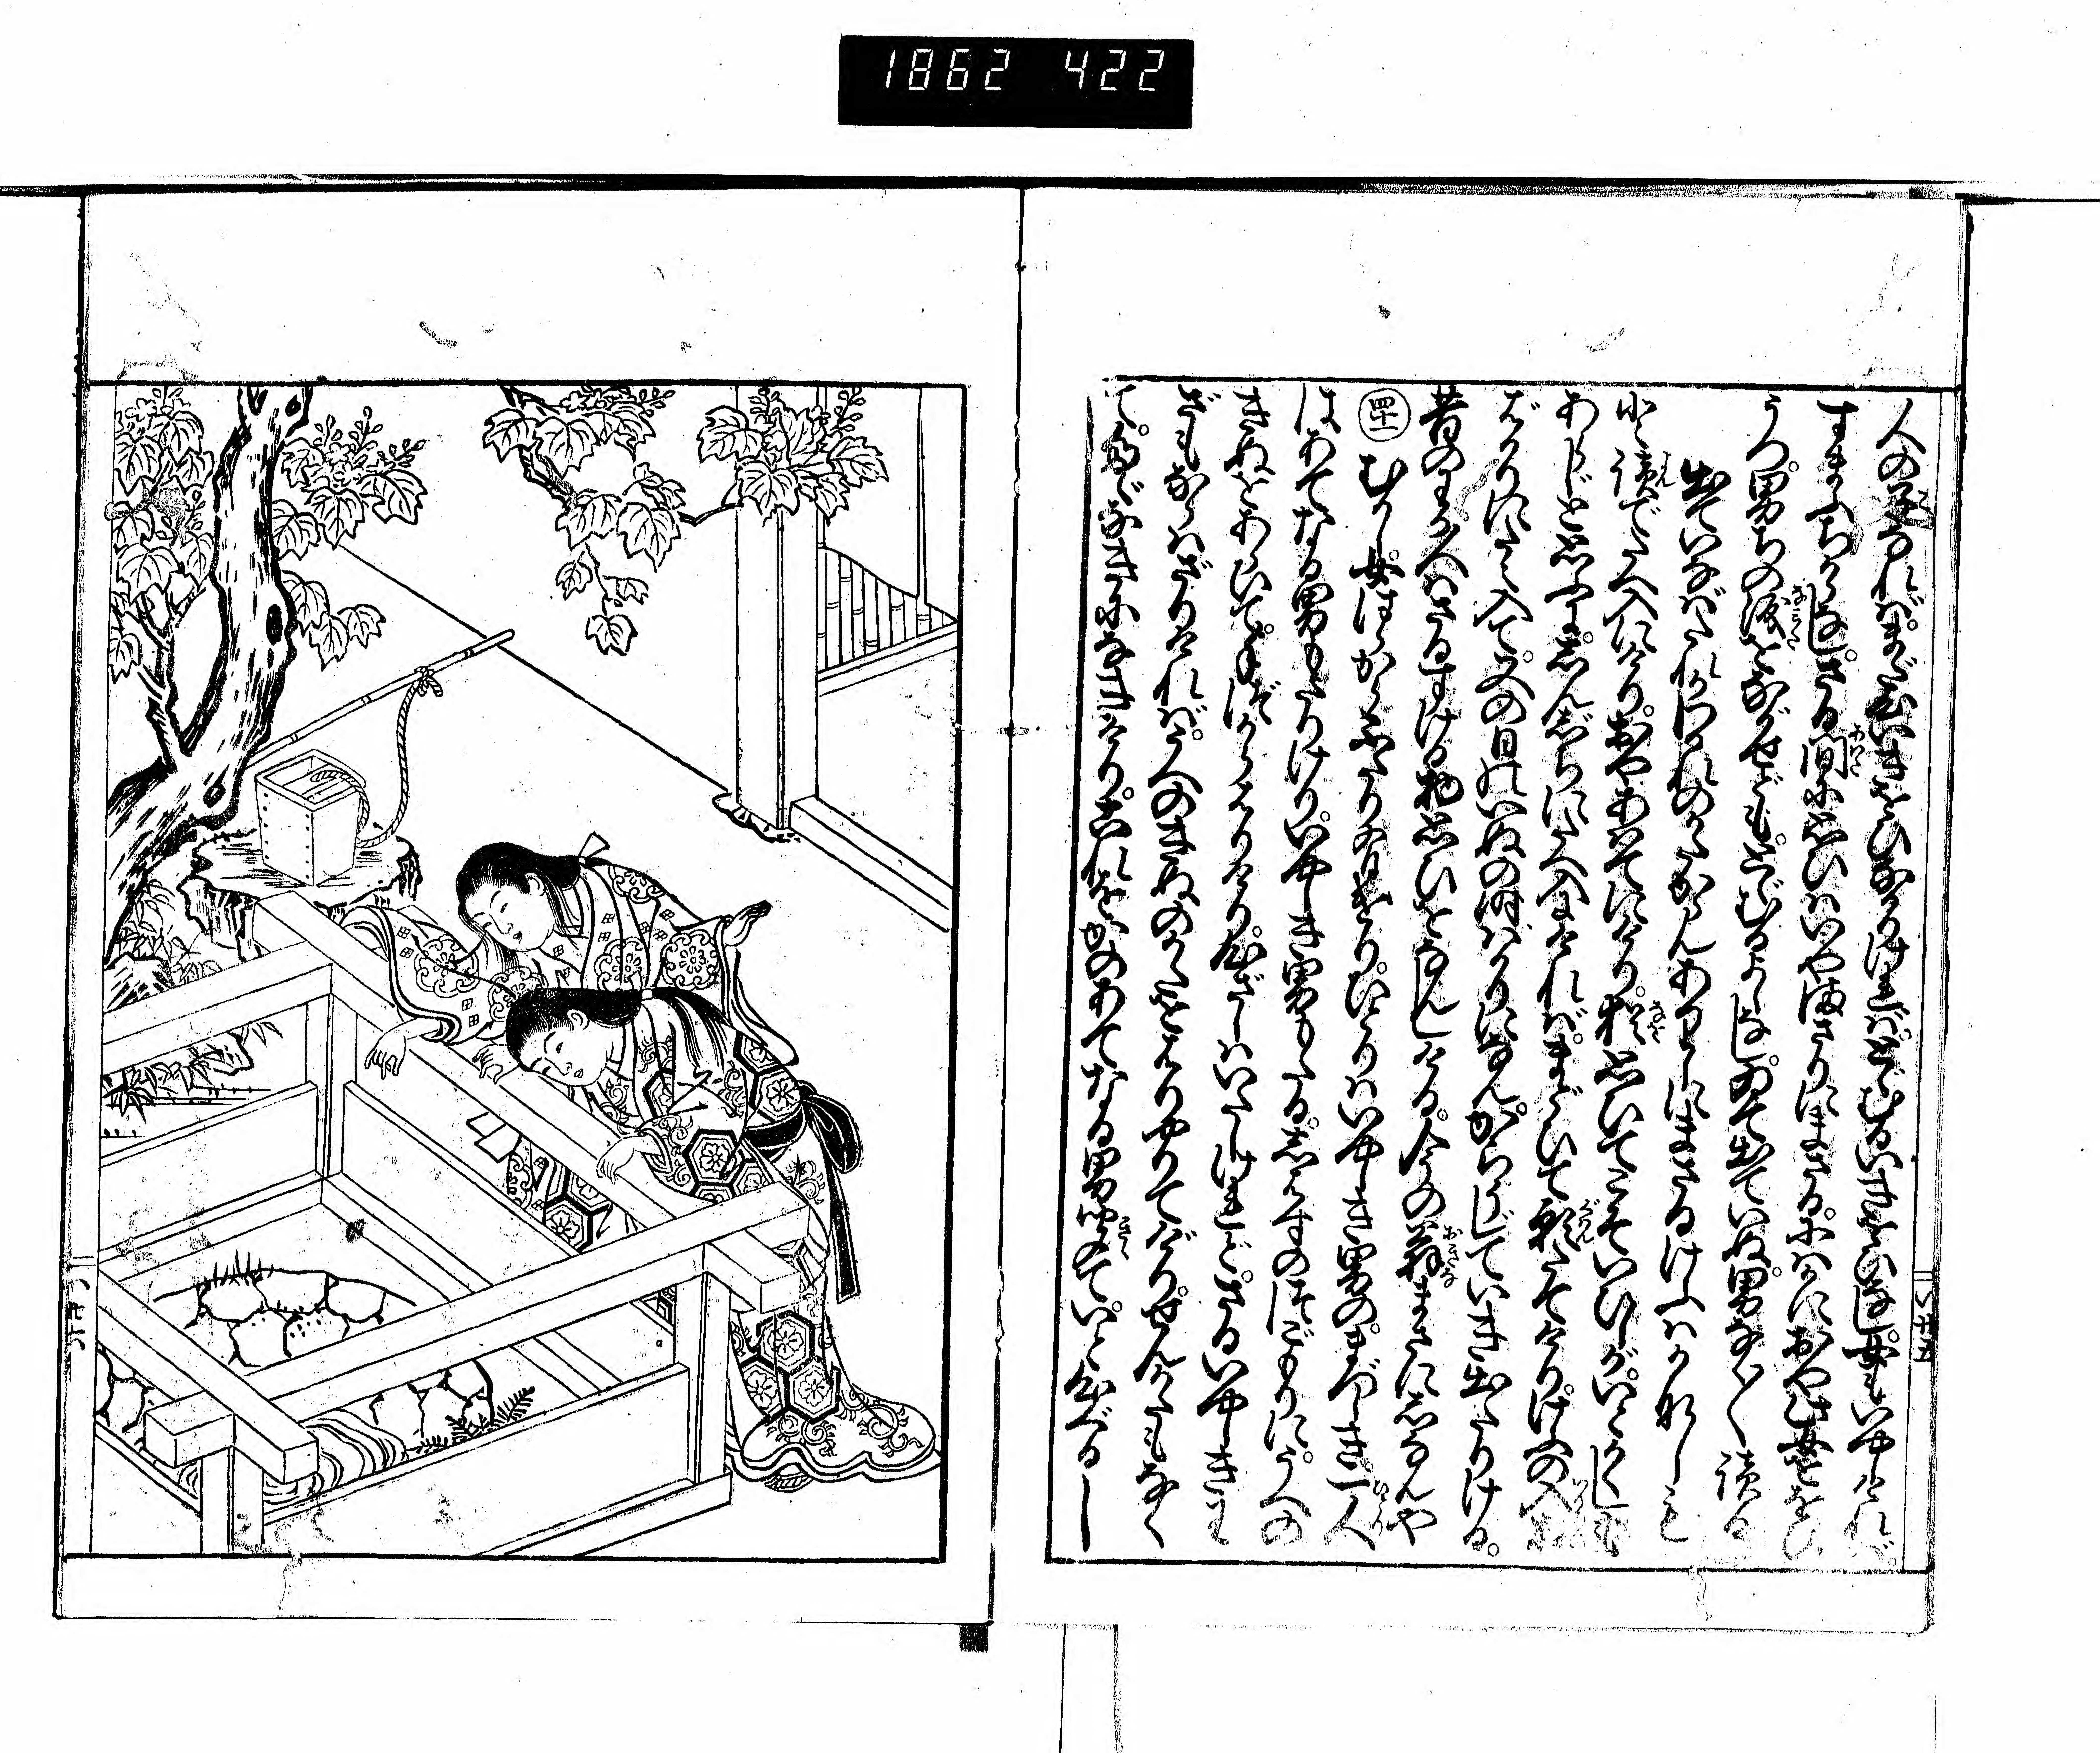 1862 422
人の子なれば。まだ心いきほひなかりければ。とゞむるいきほひなし。女もいやしければ。
すまふちからなし。さる間に思ひはいやまさりにまさる。にはかにおや此女をおひ
うつ。男ちの涙をながせども。とゞむるよしなし。ゐて出ていぬ。男なく〳〵読る
出ていなばたれかわかれのかたからんありしにまさるけふはかなしも
と読でたえ入にけり。おやあはてにけり。猶思ひてこそいひしが。いとかくしも
あらじと思ふに。しんじちにたえ入にければ。まどひて願たてけり。けふの入あひ
ばかりにたえ入て。又の日のいぬの時ばかりになん。からうじていき出たりける。
昔のわか人はさるすける物思ひをなんしける。今の翁まさにしなんや
四十一 むかし女はらからふたり有けり。ひとりはいやしき男の。まづしき。一人
はあてなる男もたりけり。いやしき男もたる。しはすのつごもりに。うへの
きぬをあらひて。手づからはりけり。心ざしはいたしけれど。さるいやしきわ
ざもならはざりければ。うへのきぬのかたをはりやりてけり。せんかたもなく
て。たゞなきになきけり。これをかのあてなる男聞て。いと心ぐるし
い廿五